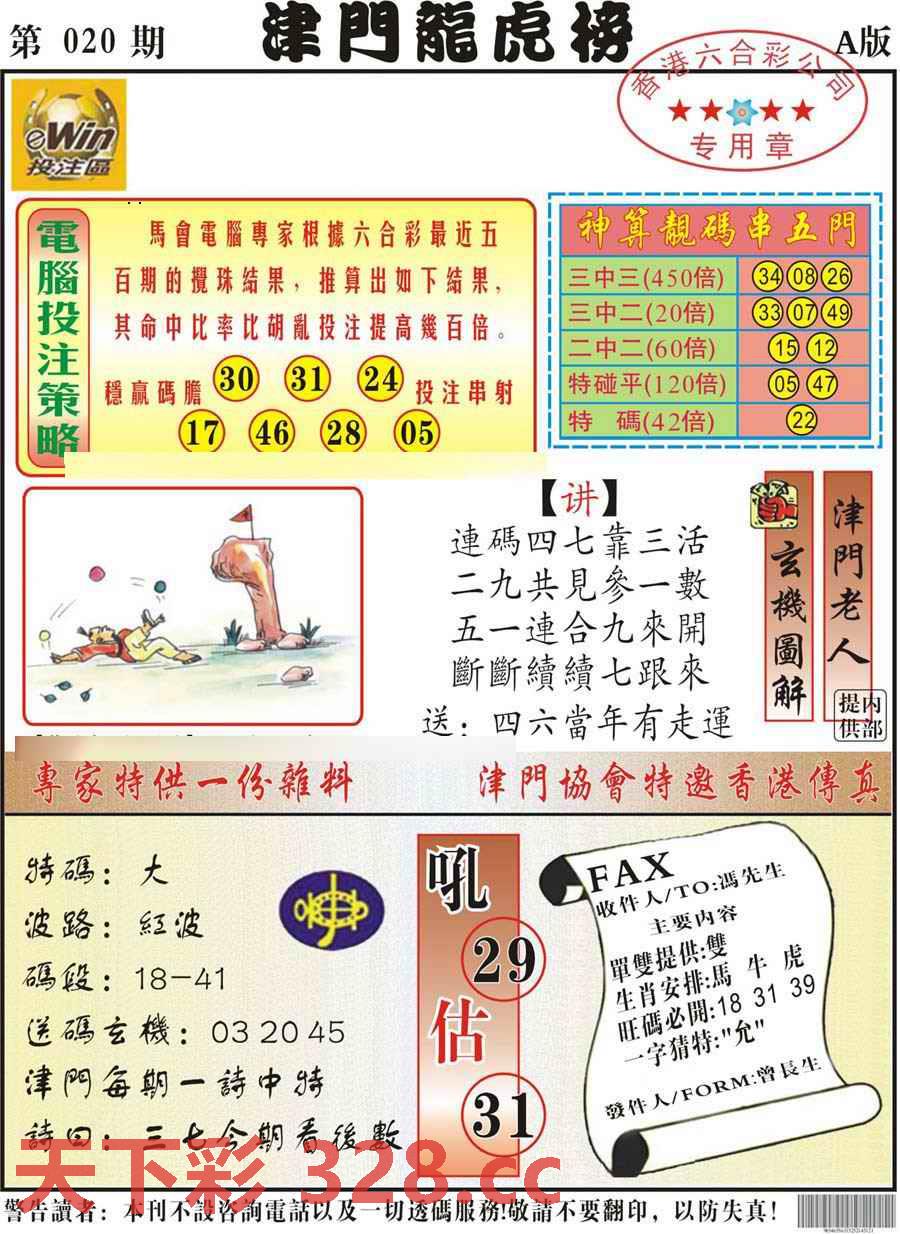 第 020 期
津門龍虎榜
A版
香港六合彩公司
专用章
eWin
投注區
電腦投注策略
馬會電腦專家根據六合彩最近五
百期的攪珠結果，推算出如下結果，
其命中比率比胡亂投注提高幾百倍。
穩贏碼膽 30 31 24 投注串射
17 46 28 05
神算靚碼串五門
三中三(450倍) 34 08 26
三中二(20倍) 33 07 49
二中二(60倍) 15 12
特碰平(120倍) 05 47
特　碼(42倍) 22
【讲】
連碼四七靠三活
二九共見參一數
五一連合九來開
斷斷續續七跟來
送：四六當年有走運
玄機圖解
津門老人
内部提供
專家特供一份雜料
津門協會特邀香港傳真
特碼：大
波路：紅波
碼段：18-41
送碼玄機：03 20 45
津門每期一詩中特
詩曰：三七今期看後數
吼
29
估
31
FAX
收件人/TO:馮先生
主要内容
單雙提供:雙
生肖安排:馬 牛 虎
旺碼必開:18 31 39
一字猜特:"允"
發件人/FORM:曾長生
天下彩 328.cc
警告讀者：本刊不設咨詢電話以及一切透碼服務!敬請不要翻印，以防失真！